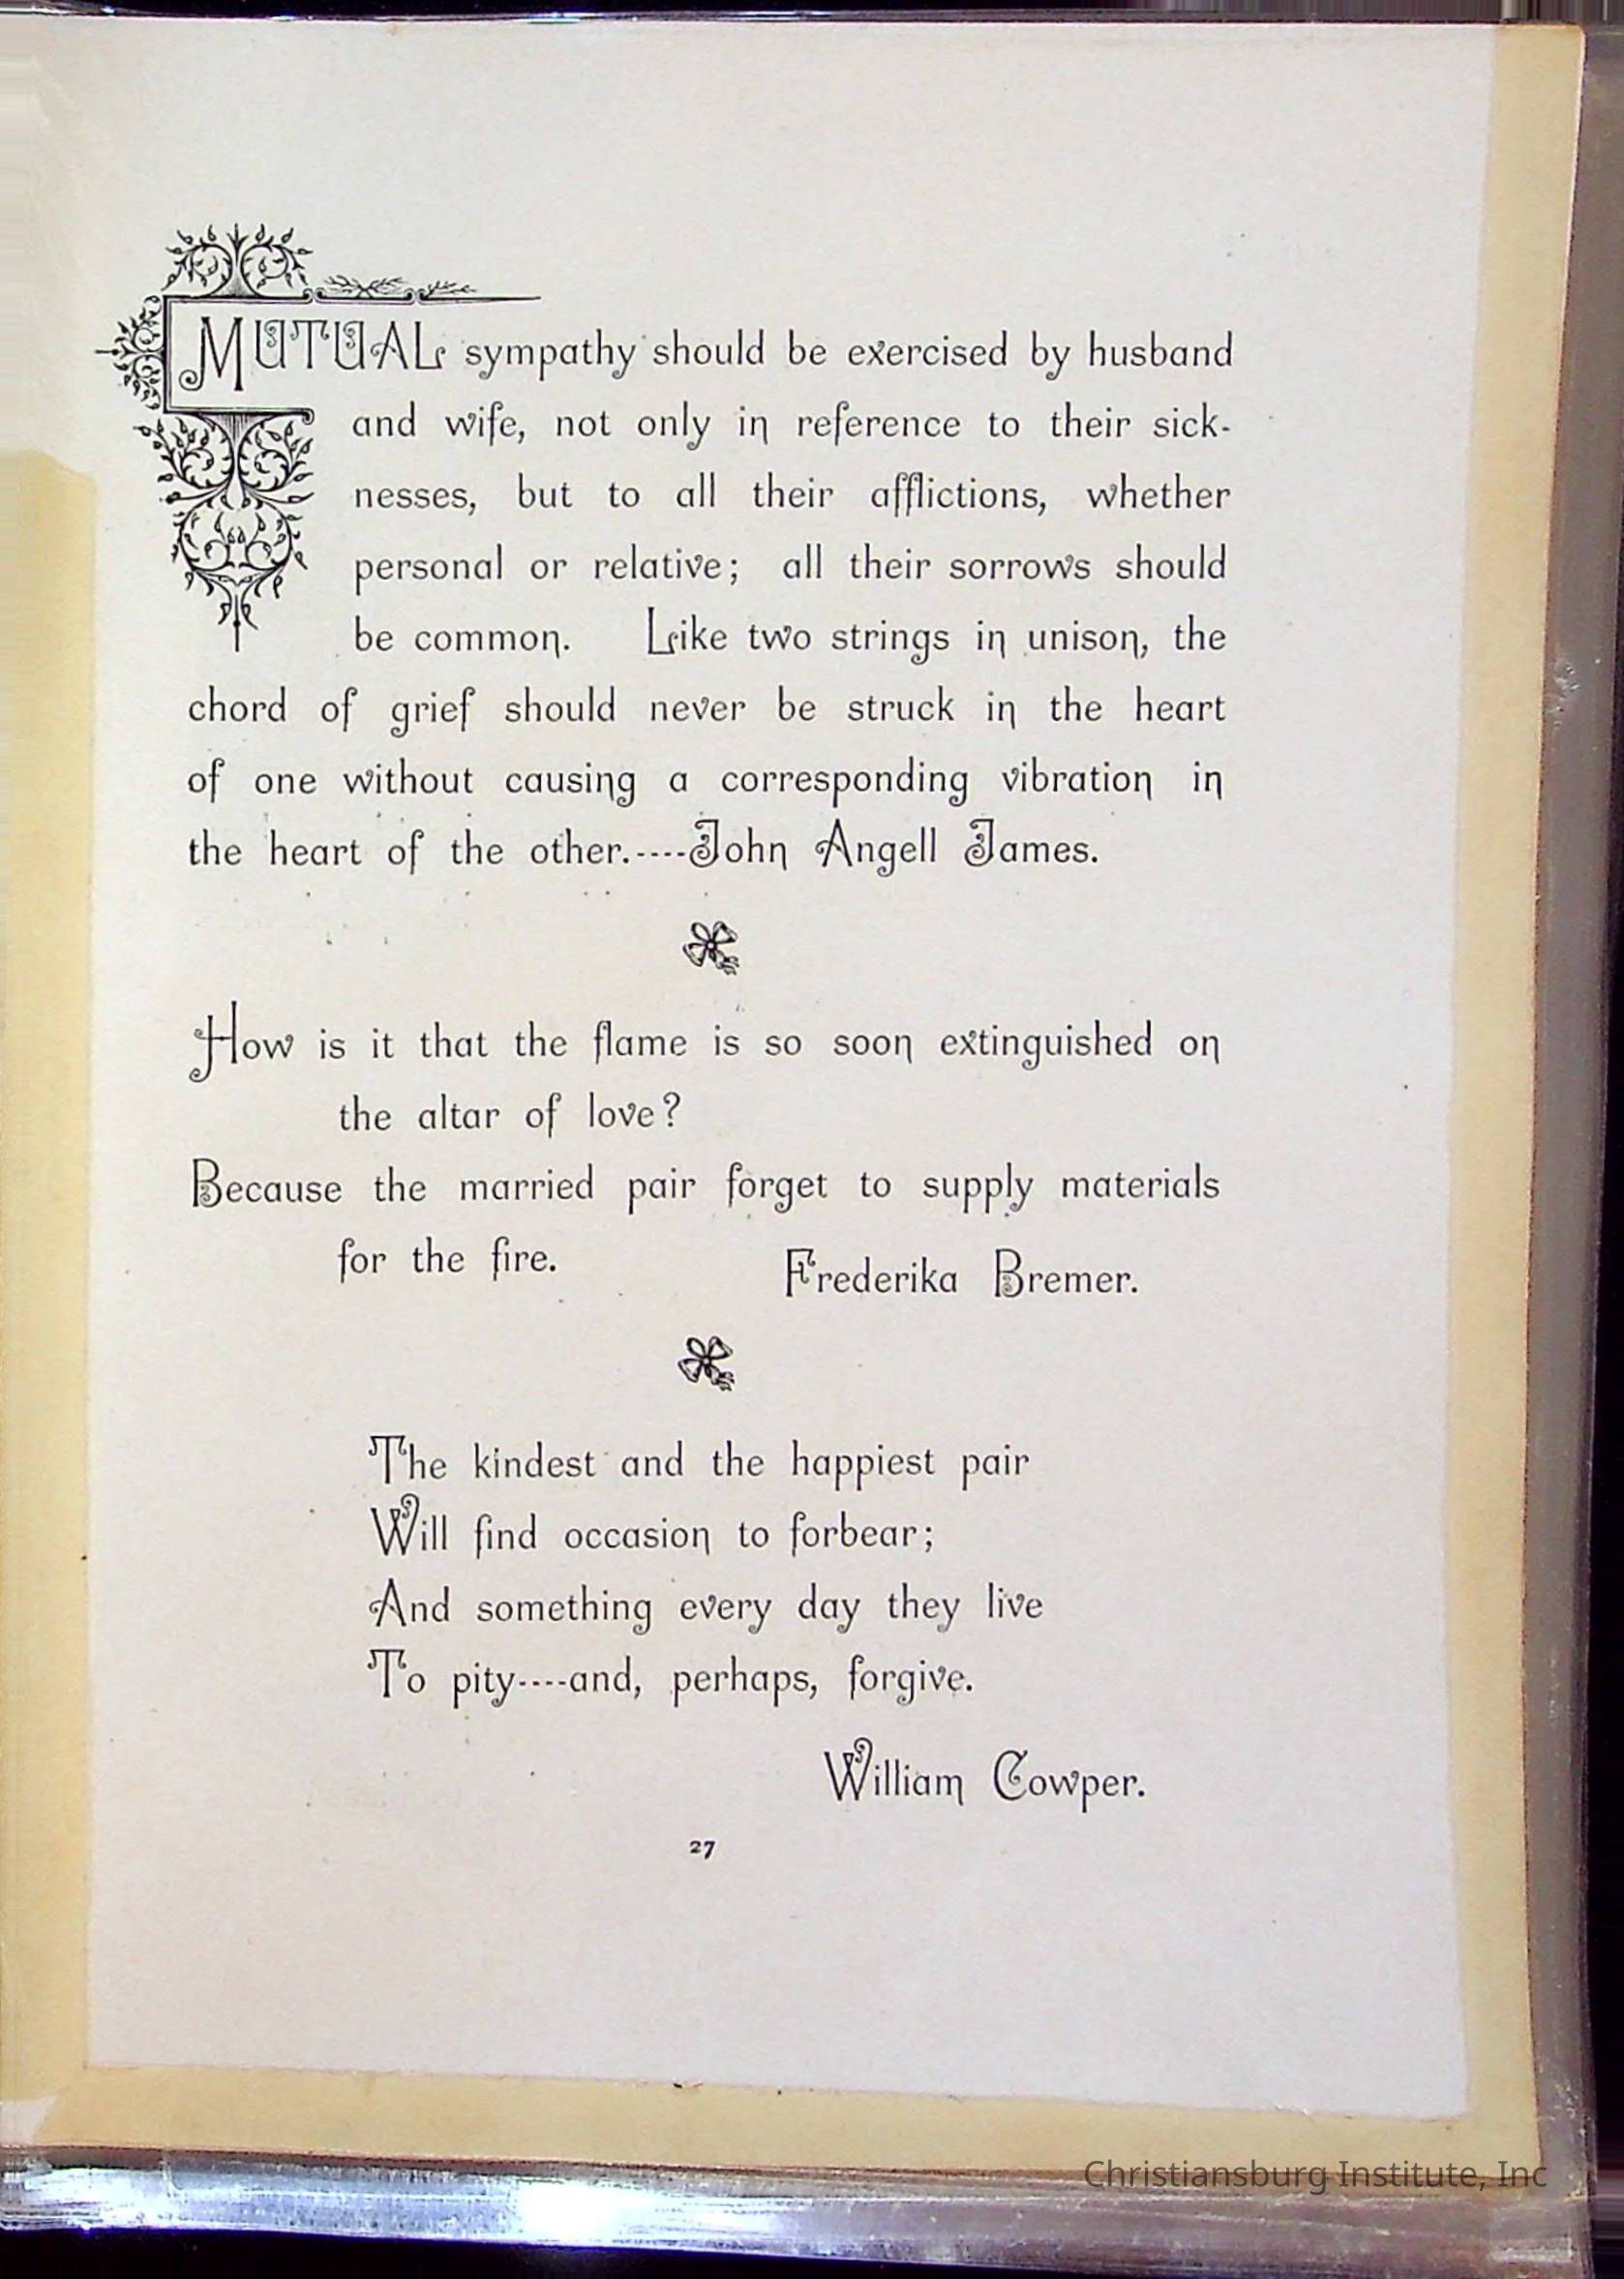 MUTUAL sympathy should be exercised by husband
and wife, not only in reference to their sick-
nesses, but to all their afflictions, whether
personal or relative; all their sorrows should
be common. Like two strings in unison, the
chord of grief should never be struck in the heart
of one without causing a corresponding vibration in
the heart of the other.----John Angell James.
How is it that the flame is so soon extinguished on
the altar of love?
Because the married pair forget to supply materials
for the fire.
Frederika Bremer.
The kindest and the happiest pair
Will find occasion to forbear;
And something every day they live
To pity----and, perhaps, forgive.
William Cowper.
27
Christiansburg Institute, Inc